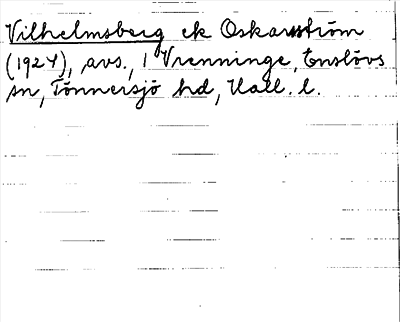 Vilhelmsberg ek Oskarström
(1924), avs., 1 Vrenninge, Enslövs
sn, Tönnersjö hd, Hall. l.